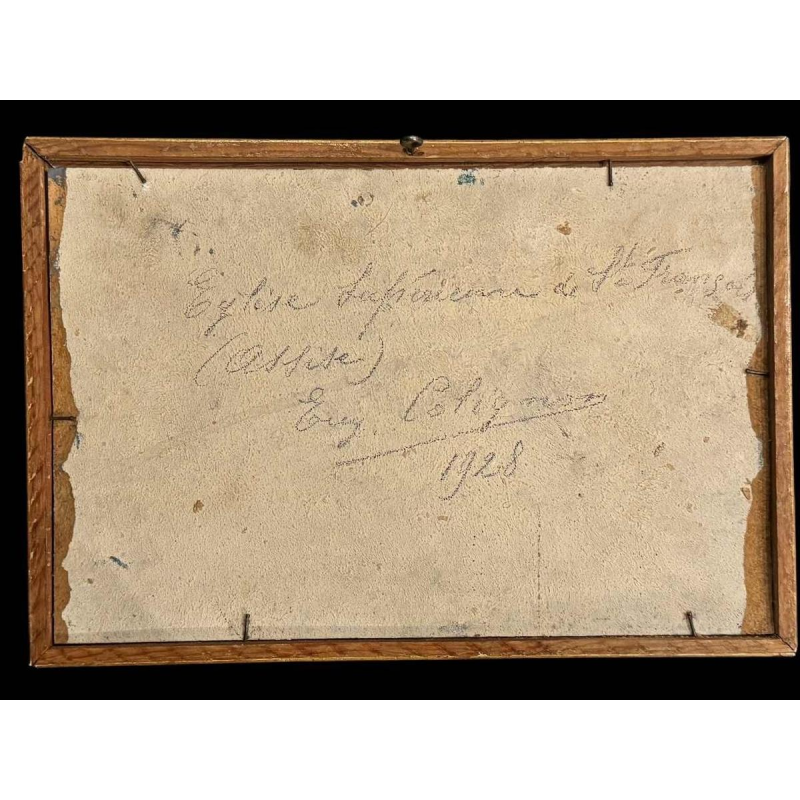 Eglise Supérieure de St. François
(Assise)
Eug. Colignon
1928